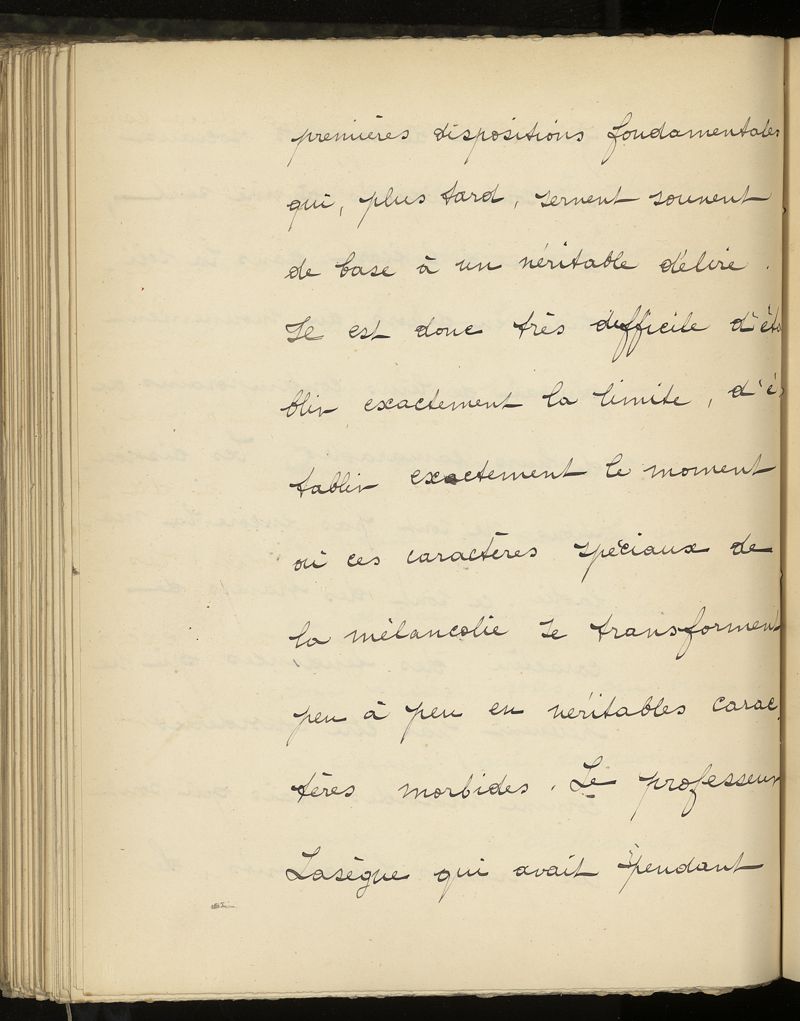 premières dispositions fondamentales
qui, plus tard, servent souvent,
de base à un véritable délire.
Il est donc très difficile d'éta
blir exactement la limite, d'é-
tablir exactement le moment
où ces caractères spéciaux de
la mélancolie se transforment
peu à peu en véritables carac-
tères morbides. Le professeur
Lasègue qui avait pendant